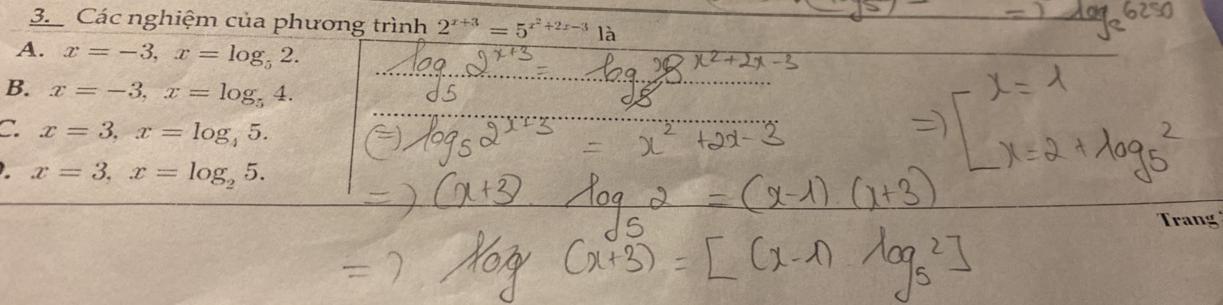 3. Các nghiệm của phương trình 2^{x+3} = 5^{x^2+2x-3} là
A. x = -3, x = log_5 2.
B. x = -3, x = log_5 4.
C. x = 3, x = log_4 5.
. x = 3, x = log_2 5.
=) log_5 6250
log_5 2^{x+3} = log_5 x^2+2x-3
(=) log_5 2^{x+3} = x^2 + 2x - 3
=) (x+3) . log_5 2 = (x-1) . (x+3)
=) (x+3) = [ (x-1) . log_5 2 ]
=) [ x = 1
x = 2 + log_5 2
Trang